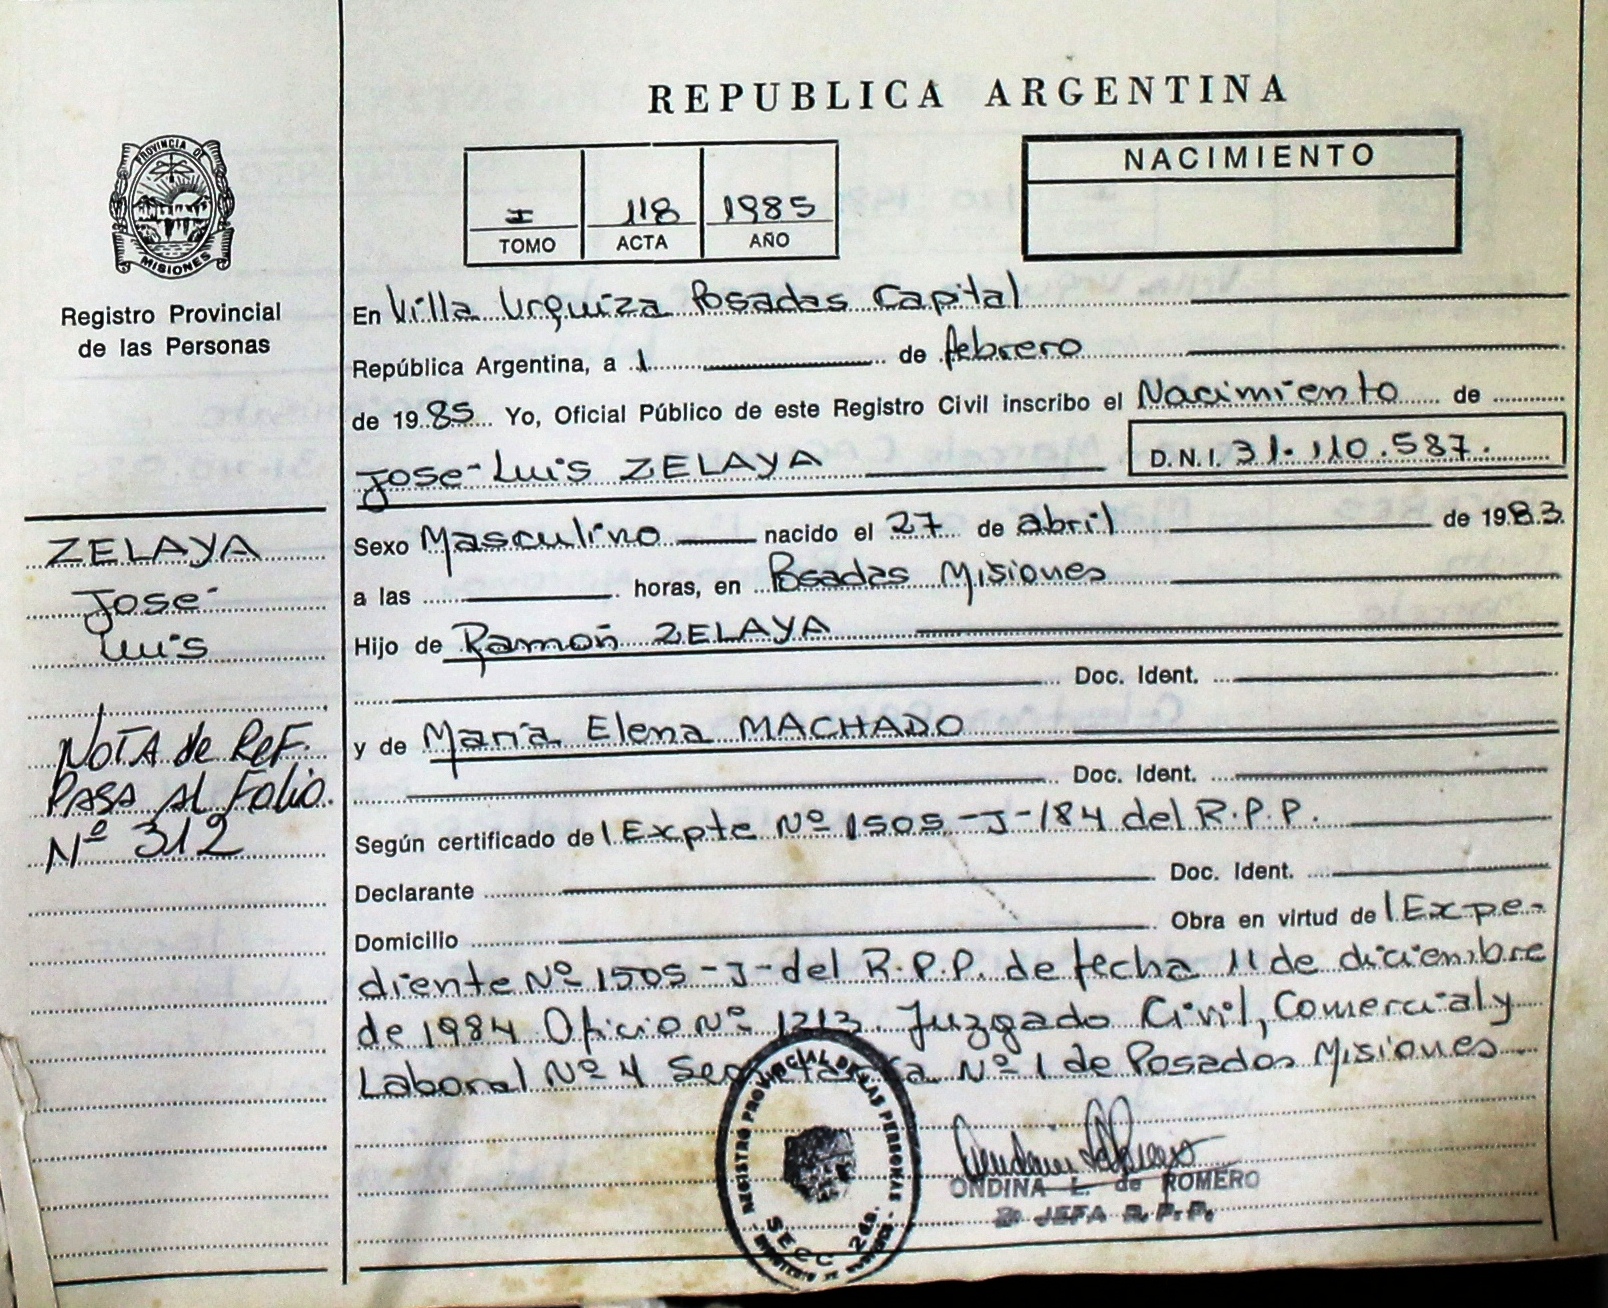 REPUBLICA ARGENTINA
PROVINCIA DE
MISIONES
Registro Provincial
de las Personas
I 118 1985
TOMO ACTA AÑO
NACIMIENTO
En Villa Urquiza Posadas Capital
República Argentina, a 1 de febrero
de 1985 Yo, Oficial Público de este Registro Civil inscribo el Nacimiento de
Jose Luis ZELAYA D.N.I. 31.110.587.
Sexo Masculino nacido el 27 de abril de 1983.
a las horas, en Posadas Misiones
Hijo de Ramón ZELAYA
Doc. Ident.
y de María Elena MACHADO
Doc. Ident.
Según certificado del Expte Nº 1505-J-184 del R.P.P.
Declarante Doc. Ident.
Domicilio Obra en virtud del Expe-
diente Nº 1505-J-del R.P.P. de fecha 11 de diciembre
de 1984 Oficio Nº 1213. Juzgado Civil, Comercial y
Laboral Nº 4 Secretaría Nº 1 de Posadas Misiones
ZELAYA
Jose
Luis
NOTA de ReF.
PASA Al Folio.
Nº 312
REGISTRO PROVINCIAL DE LAS PERSONAS
SECC 2da.
ONDINA L. de ROMERO
JEFA R.P.P.